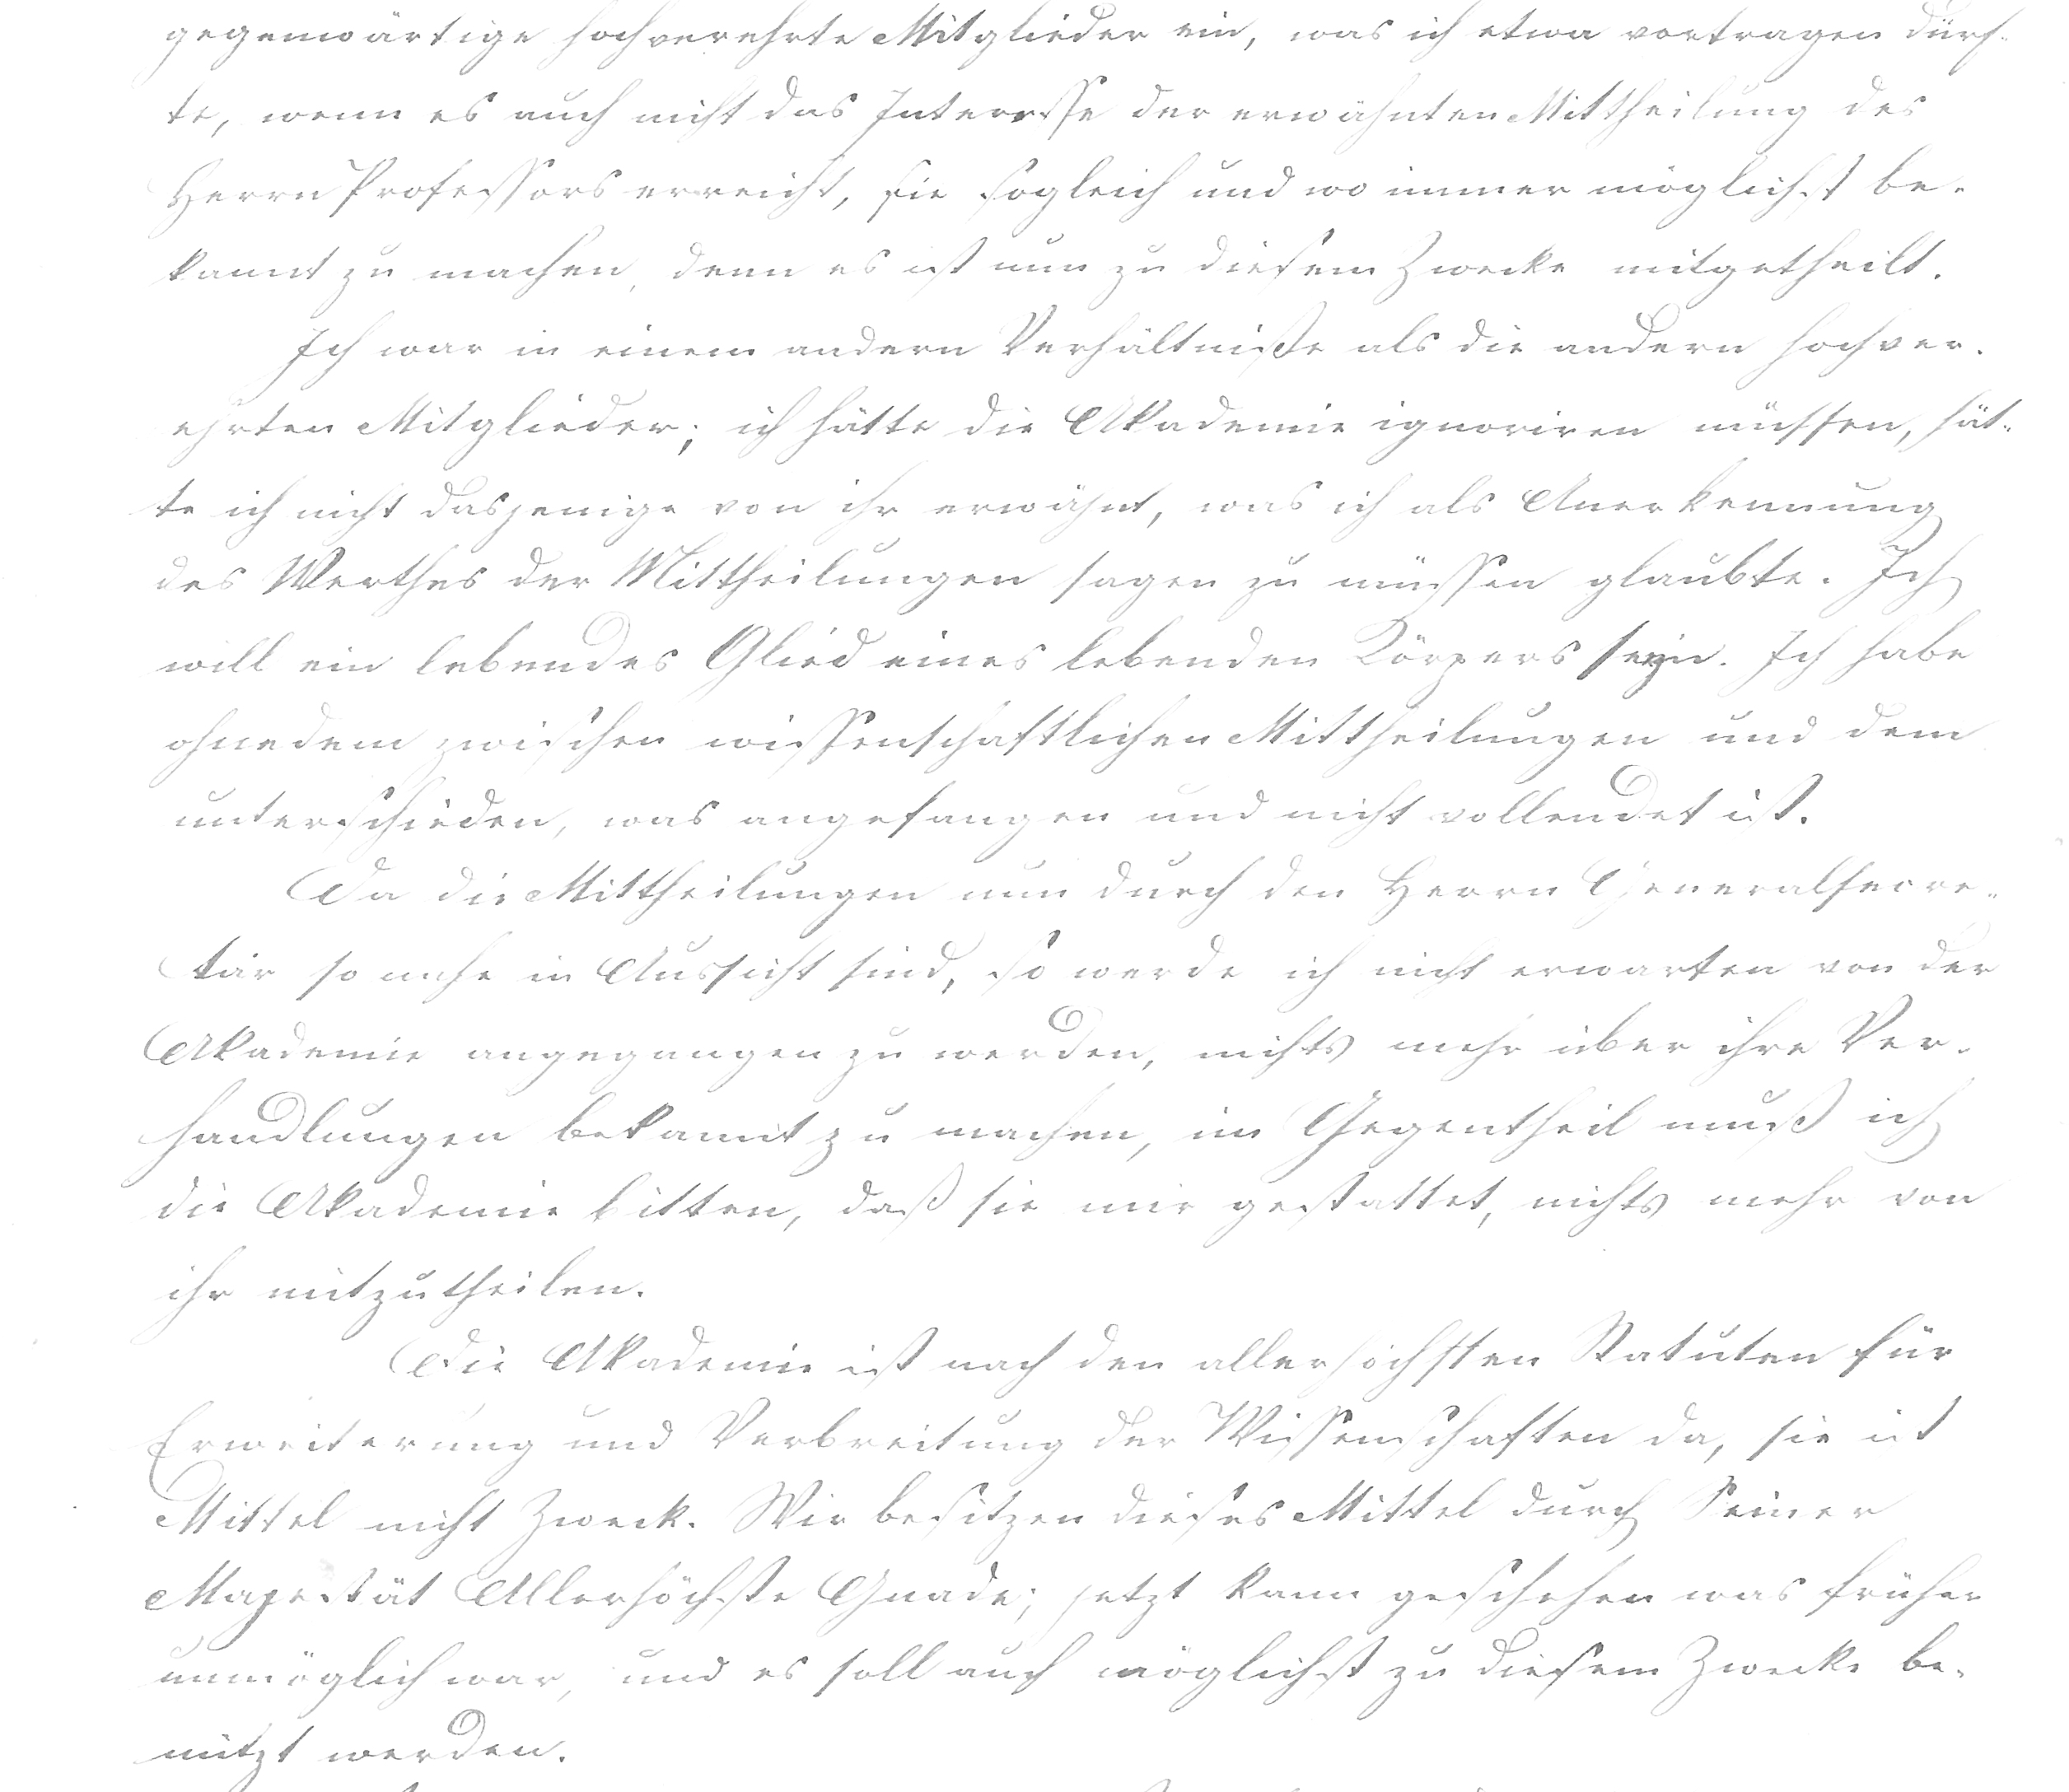 gegenwärtige hochverehrte Mitglieder ein, was ich etwa vortragen dürf-
te, wenn es auch nicht das Interesse der erwähnten Mittheilung des
Herrn Professors erreicht, sie sogleich und wo immer möglichst be-
kannt zu machen, denn es ist nun zu diesem Zwecke mitgetheilt.
Ich war in einem andern Verhältniße als die andern hochver-
ehrten Mitglieder; ich hätte die Akademie ignoriren müssen, hät-
te ich nicht dasjenige von ihr erwähnt, was ich als Anerkennung
des Werthes der Mittheilungen sagen zu müssen glaubte. Ich
will ein lebendes Glied eines lebenden Körpers seyn. Ich habe
ohnedem zwischen wissenschaftlichen Mittheilungen und dem
unterschieden, was angefangen und nicht vollendet ist.
Da die Mittheilungen nun durch den Herrn Generalsecre-
tär so nahe in Aussicht sind, so werde ich nicht erwarten von der
Akademie angegangen zu werden, nichts mehr über ihre Ver-
handlungen bekannt zu machen, im Gegentheil muß ich
die Akademie bitten, daß sie mir gestattet, nichts mehr von
ihr mitzutheilen.
Die Akademie ist nach den allerhöchsten Statuten für
Erweiterung und Verbreitung der Wissenschaften da, sie ist
Mittel nicht Zweck. Wir besitzen dieses Mittel durch Seiner
Majestät Allerhöchste Gnade; jetzt kann geschehen was früher
unmöglich war, und es soll auch möglichst zu diesem Zwecke be-
nützt werden.